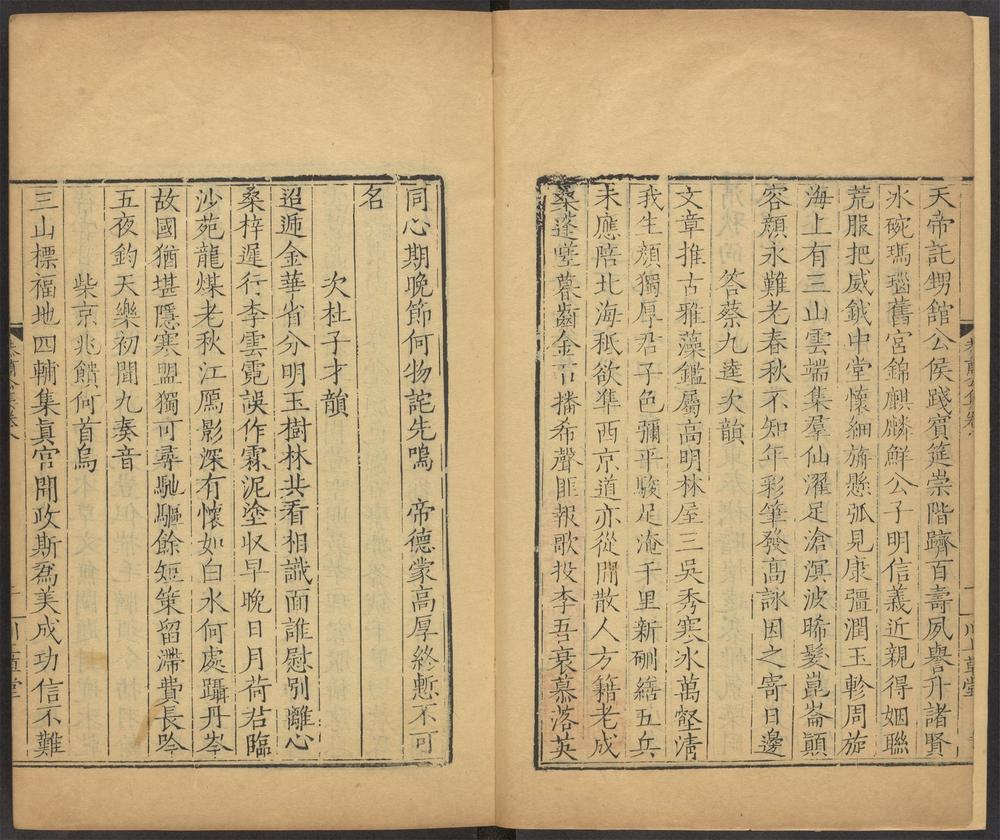 天帝託甥舘公侯踐賓筵崇階躋百壽夙譽升諸賢
氷碗瑪瑙舊宮錦麒麟鮮公子明信義近親得姻聯
荒服把威鉞中堂懷細旃懸弧見康彊潤玉軫周旋
海上有三山雲端集羣仙濯足滄溟波晞髮崑崙顚
容顏永難老春秋不知年彩筆發高詠因之寄日邊
答蔡九逵次韻
文章推古雅藻鑑屬高明林屋三吳秀寒氷萬壑清
我生顏獨厚君子色彌平駿足淹千里新硎繕五兵
未應陪北海秪欲準西京道亦從閒散人方籍老成
桑蓬嗟暮齒金石播希聲匪報歌投李吾衰慕落英
同心期晚節何物詫先鳴 帝德蒙高厚終慙不可
名
次杜子才韻
迢遞金華省分明玉樹林共看相識面誰慰別離心
桑梓遲行李雲霓誤作霖泥塗収早晚日月荷若臨
沙苑龍煤老秋江鴈影深有懷如白水何處躡丹岑
故國猶堪隱寒盟獨可尋馳驅餘短策留滯費長吟
五夜鈞天樂初聞九奏音
柴京兆饋何首烏
三山標福地四輔集眞官開政斯爲美成功信不難